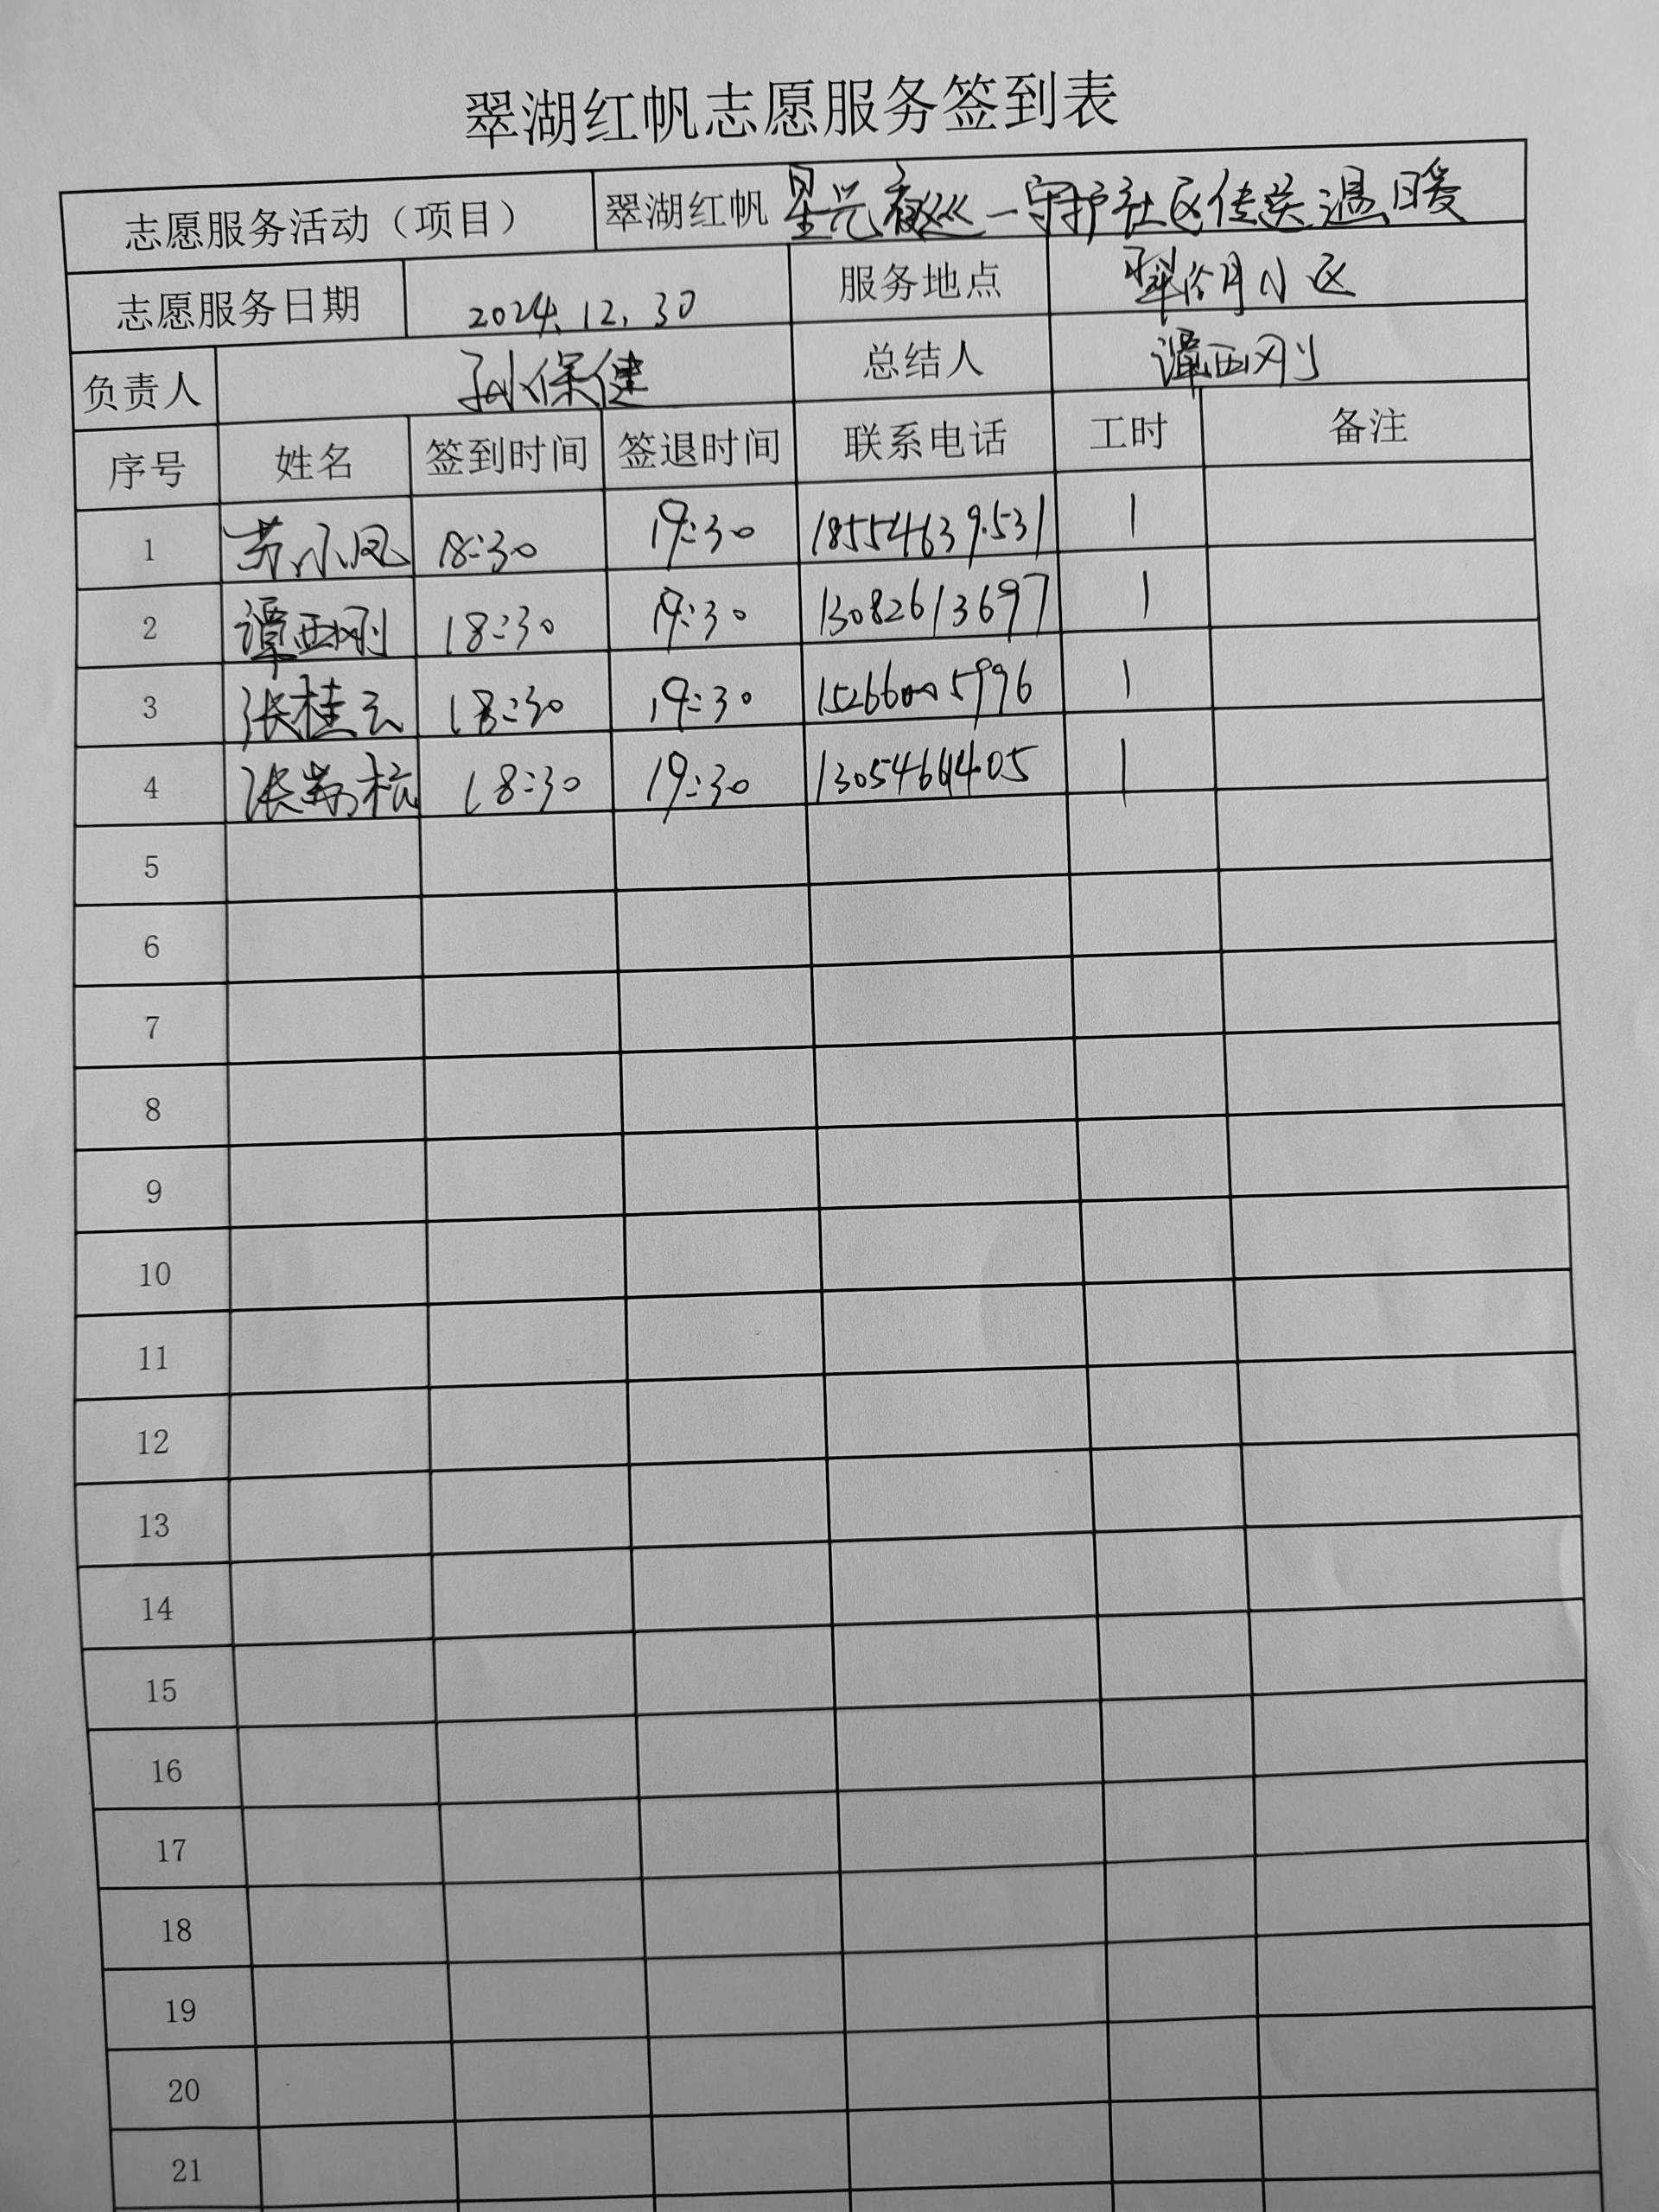 翠湖红帆志愿服务签到表
志愿服务活动（项目） 翠湖红帆 星光夜巡一守护社区传送温暖
志愿服务日期 2024.12.30 服务地点 翠湖小区
负责人 孙保健 总结人 谭西刚
序号 姓名 签到时间 签退时间 联系电话 工时 备注
1 苏小凤 18:30 19:30 18554639531 1
2 谭西刚 18:30 19:30 13082613697 1
3 张桂云 18:30 19:30 15266005996 1
4 张 18:30 19:30 1
5
6
7
8
9
10
11
12
13
14
15
16
17
18
19
20
21